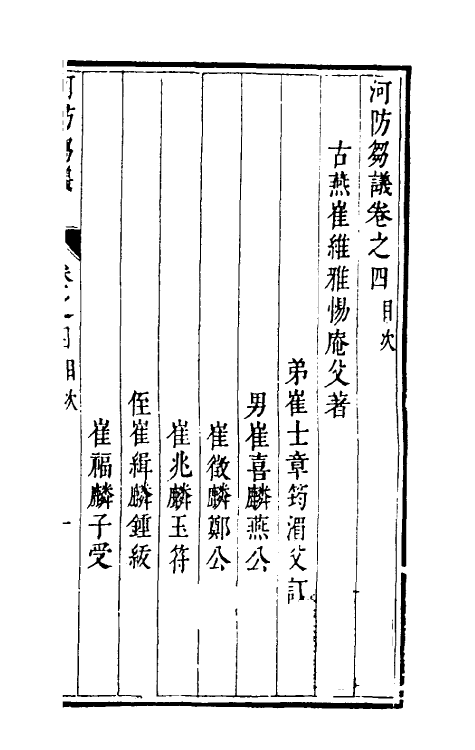 河防芻議卷之四目次
古燕崔維雅惕庵父著
弟崔士章筠湄父訂
男崔喜麟燕公
崔徵麟鄭公
崔兆麟玉符
侄崔緝麟鍾紱
崔福麟子受
河防芻議 卷之四目次 一